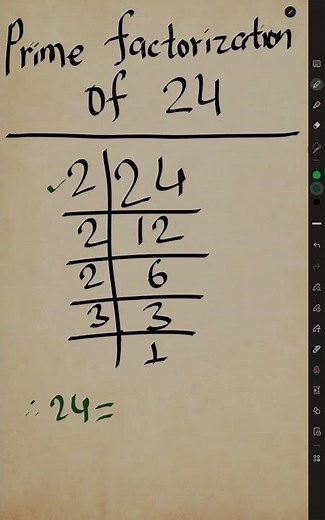 Prime factorization
of 24
✓2 | 24
2 | 12
2 | 6
3 | 3
1
∴ 24 =